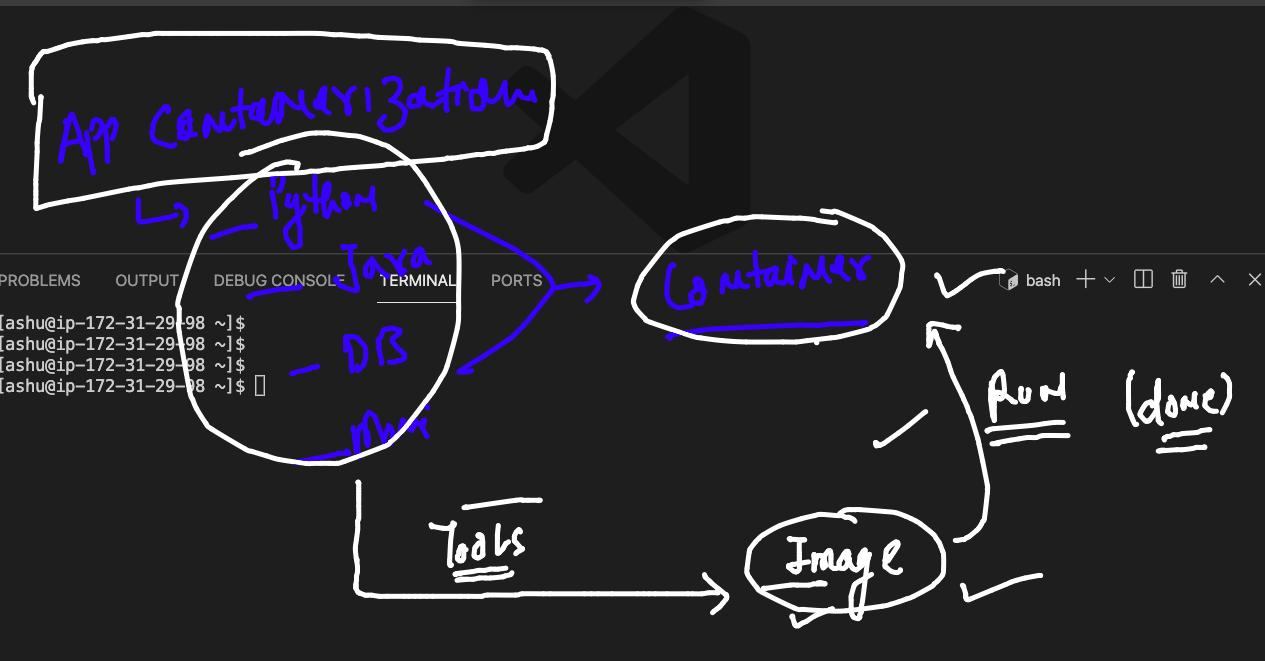 App Containerization
Python
Java
DB
PROBLEMS OUTPUT DEBUG CONSOLE TERMINAL PORTS bash
[ashu@ip-172-31-29-98 ~]$
[ashu@ip-172-31-29-98 ~]$
[ashu@ip-172-31-29-98 ~]$
[ashu@ip-172-31-29-98 ~]$
Container
Run (done)
Tools
Image